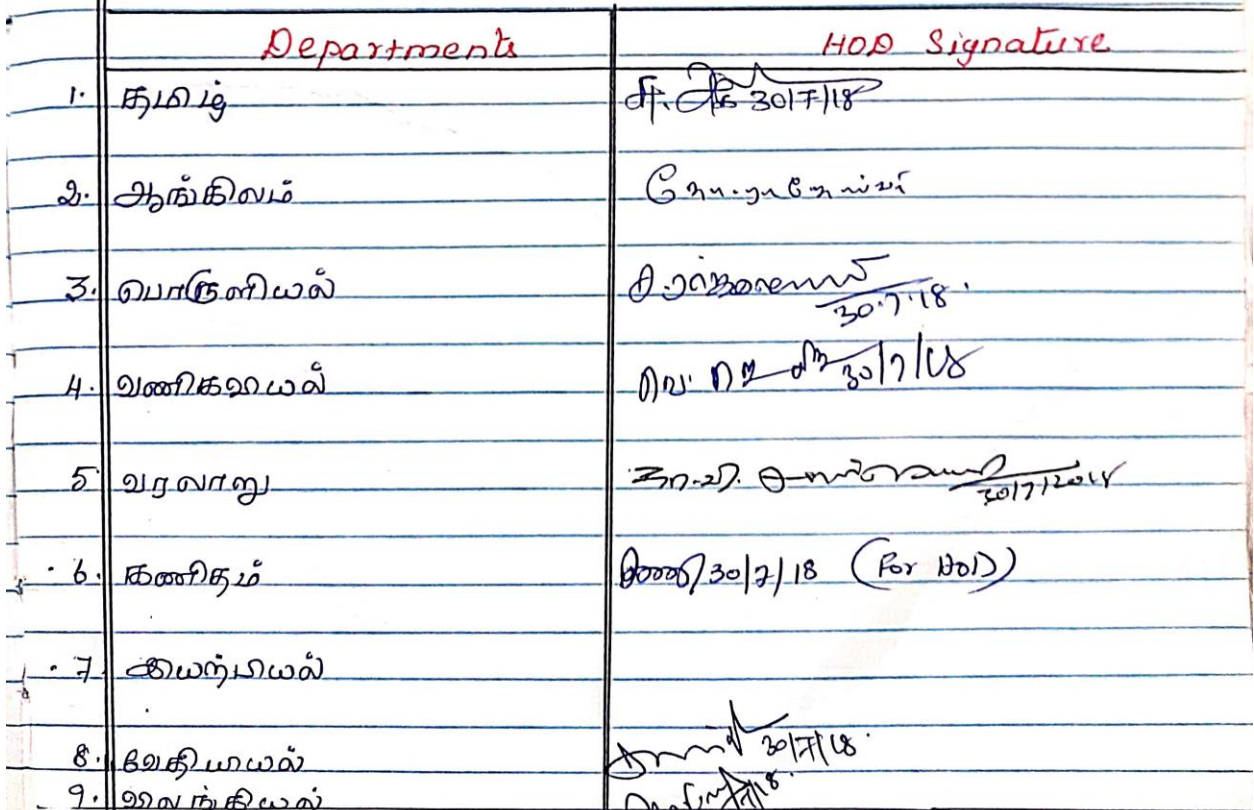 Departments HOD Signature
1. தமிழ் 30/7/18
2. ஆங்கிலம்
3. பொருளியல் 30.7.18.
4. வணிகவியல் 30/7/18
5. வரலாறு 30/7/2018
6. கணிதம் 30/7/18 (For HOD)
7. இயற்பியல்
8. வேதியியல் 30/7/18.
9. விலங்கியல்